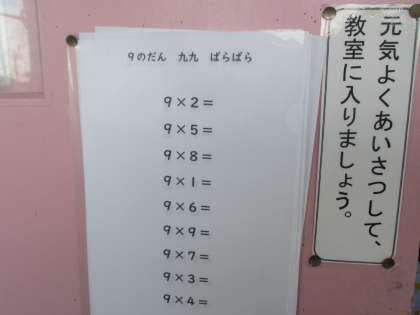 9のだん 九九 ばらばら
9×2=
9×5=
9×8=
9×1=
9×6=
9×9=
9×7=
9×3=
9×4=
元気よくあいさつして、
教室に入りましょう。